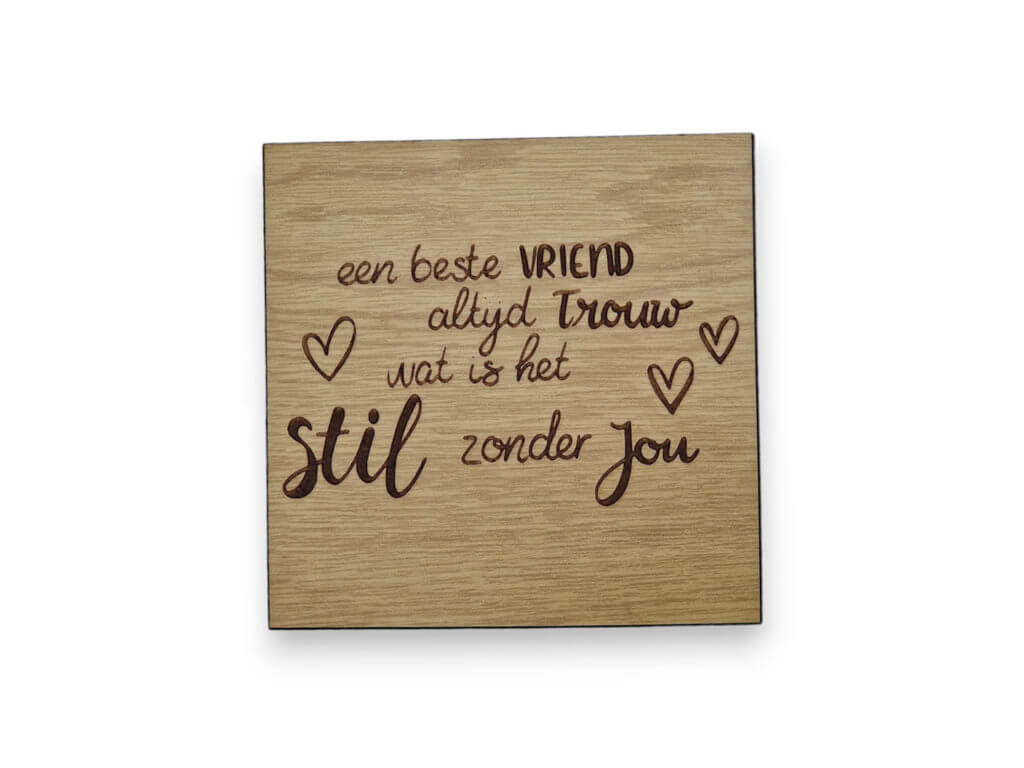 een beste VRIEND
altijd Trouw
wat is het
Stil zonder Jou